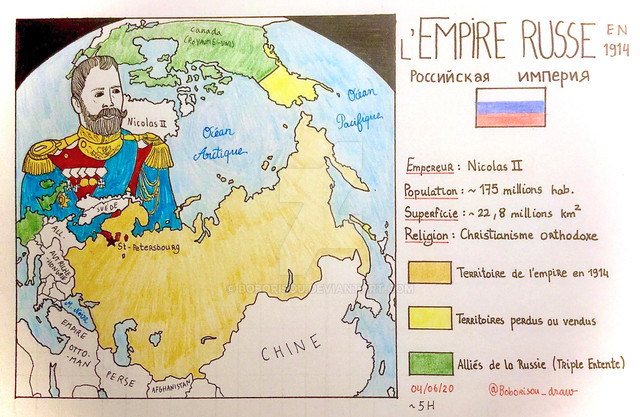 L'EMPIRE RUSSE EN 1914
Российская империя
Empereur : Nicolas II
Population : ~ 175 millions hab.
Superficie : ~ 22,8 millions km²
Religion : Christianisme orthodoxe
Territoire de l'empire en 1914
Territoires perdus ou vendus
Alliés de la Russie (Triple Entente)
04/06/20
@Boborisou_draw
~5H
Canada
(ROYAUME-UNI)
Nicolas II
Océan
Arctique
Océan
Pacifique
SUÈDE
St-Petersbourg
ALL.
AUTRICHE
HONGRIE
M. Noire
EMPIRE
OTTO-
MAN
PERSE
AFGHANISTAN
CHINE